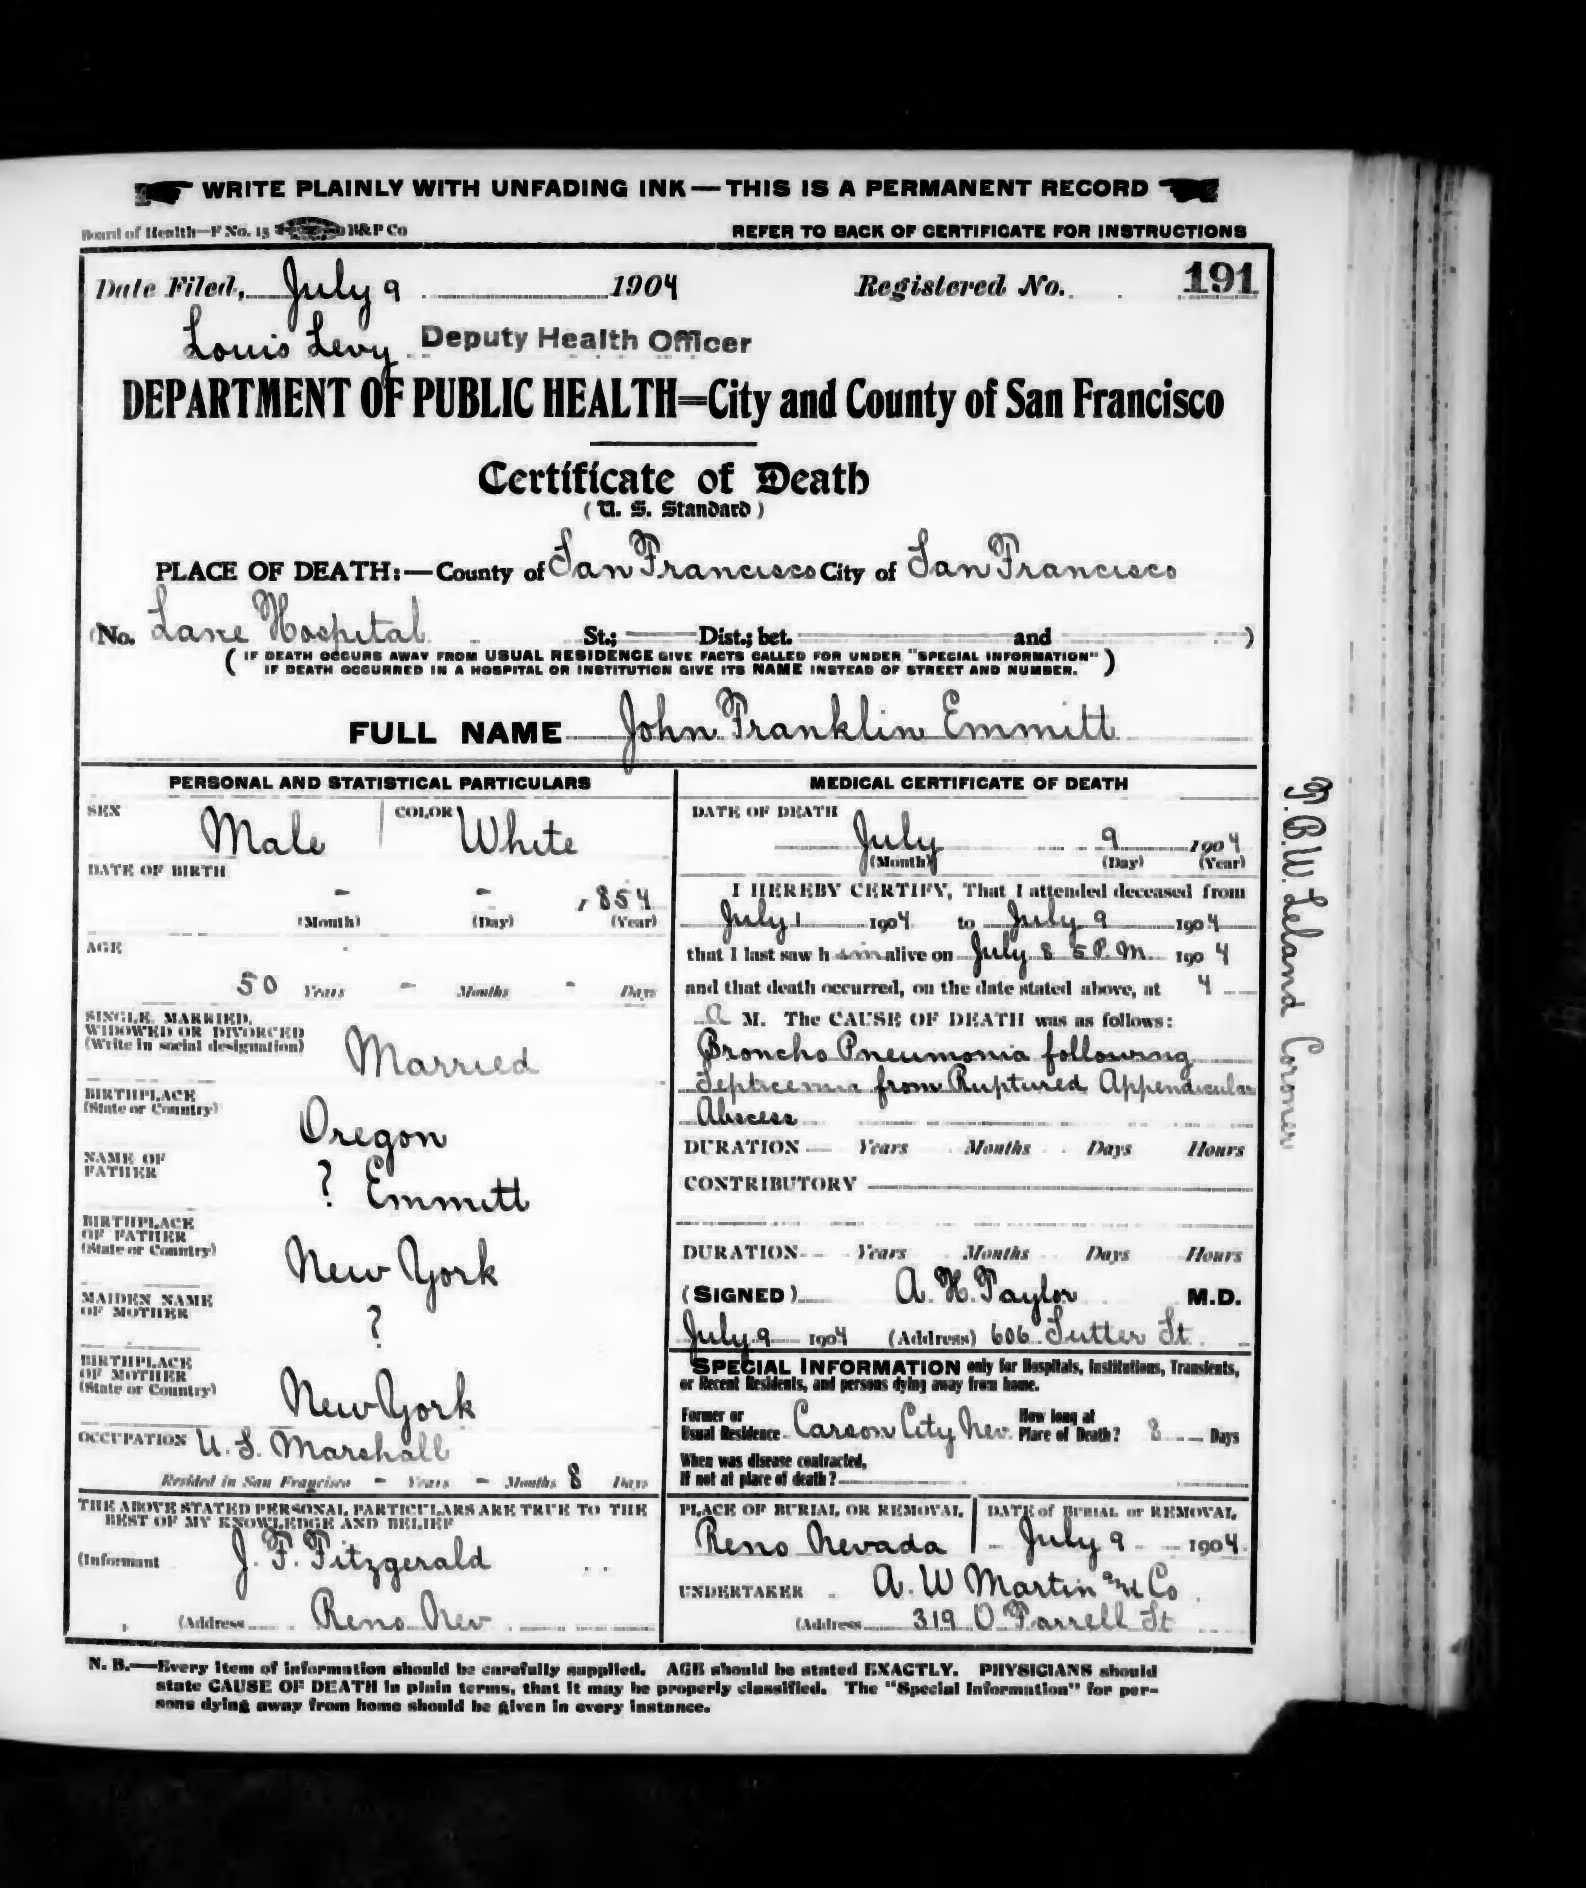 WRITE PLAINLY WITH UNFADING INK—THIS IS A PERMANENT RECORD
Board of Health—F No. 15 H&P Co
REFER TO BACK OF CERTIFICATE FOR INSTRUCTIONS
Date Filed, July 9 1904 Registered No. 191
Louis Levy Deputy Health Officer
DEPARTMENT OF PUBLIC HEALTH=City and County of San Francisco
Certificate of Death
(U. S. Standard)
PLACE OF DEATH:—County of San Francisco City of San Francisco
(No. Lane Hospital St.; Dist.; bet. and )
(IF DEATH OCCURS AWAY FROM USUAL RESIDENCE GIVE FACTS CALLED FOR UNDER "SPECIAL INFORMATION"
IF DEATH OCCURRED IN A HOSPITAL OR INSTITUTION GIVE ITS NAME INSTEAD OF STREET AND NUMBER.)
FULL NAME John Franklin Emmitt
PERSONAL AND STATISTICAL PARTICULARS
SEX Male COLOR White
DATE OF BIRTH
- - , 854
(Month) (Day) (Year)
AGE
50 Years - Months - Days
SINGLE, MARRIED,
WIDOWED OR DIVORCED
(Write in social designation) Married
BIRTHPLACE
(State or Country) Oregon
NAME OF
FATHER ? Emmitt
BIRTHPLACE
OF FATHER
(State or Country) New York
MAIDEN NAME
OF MOTHER ?
BIRTHPLACE
OF MOTHER
(State or Country) New York
OCCUPATION U. S. Marshall
Resided in San Francisco - Years - Months 8 Days
THE ABOVE STATED PERSONAL PARTICULARS ARE TRUE TO THE
BEST OF MY KNOWLEDGE AND BELIEF
(Informant J. F. Fitzgerald
(Address Reno Nev
MEDICAL CERTIFICATE OF DEATH
DATE OF DEATH
July 9 1904
(Month) (Day) (Year)
I HEREBY CERTIFY, That I attended deceased from
July 1 1904 to July 9 1904
that I last saw h im alive on July 8 5 P. M. 1904
and that death occurred, on the date stated above, at 4
a M. The CAUSE OF DEATH was as follows:
Broncho Pneumonia following
Septicemia from Ruptured Appendicular
Abscess
DURATION Years Months Days Hours
CONTRIBUTORY
DURATION Years Months Days Hours
(SIGNED) A. H. Taylor M.D.
July 9 1904 (Address) 606 Sutter St.
SPECIAL INFORMATION only for Hospitals, Institutions, Transients,
or Recent Residents, and persons dying away from home.
Former or
Usual Residence Carson City Nev. How long at
Place of Death? 8 Days
When was disease contracted,
If not at place of death?
PLACE OF BURIAL OR REMOVAL DATE of BURIAL or REMOVAL
Reno Nevada July 9 1904
UNDERTAKER A. W Martin and Co
(Address 319 O'Farrell St
T. B. W. Leland Coroner
N. B.—Every item of information should be carefully supplied. AGE should be stated EXACTLY. PHYSICIANS should
state CAUSE OF DEATH in plain terms, that it may be properly classified. The "Special Information" for per-
sons dying away from home should be given in every instance.